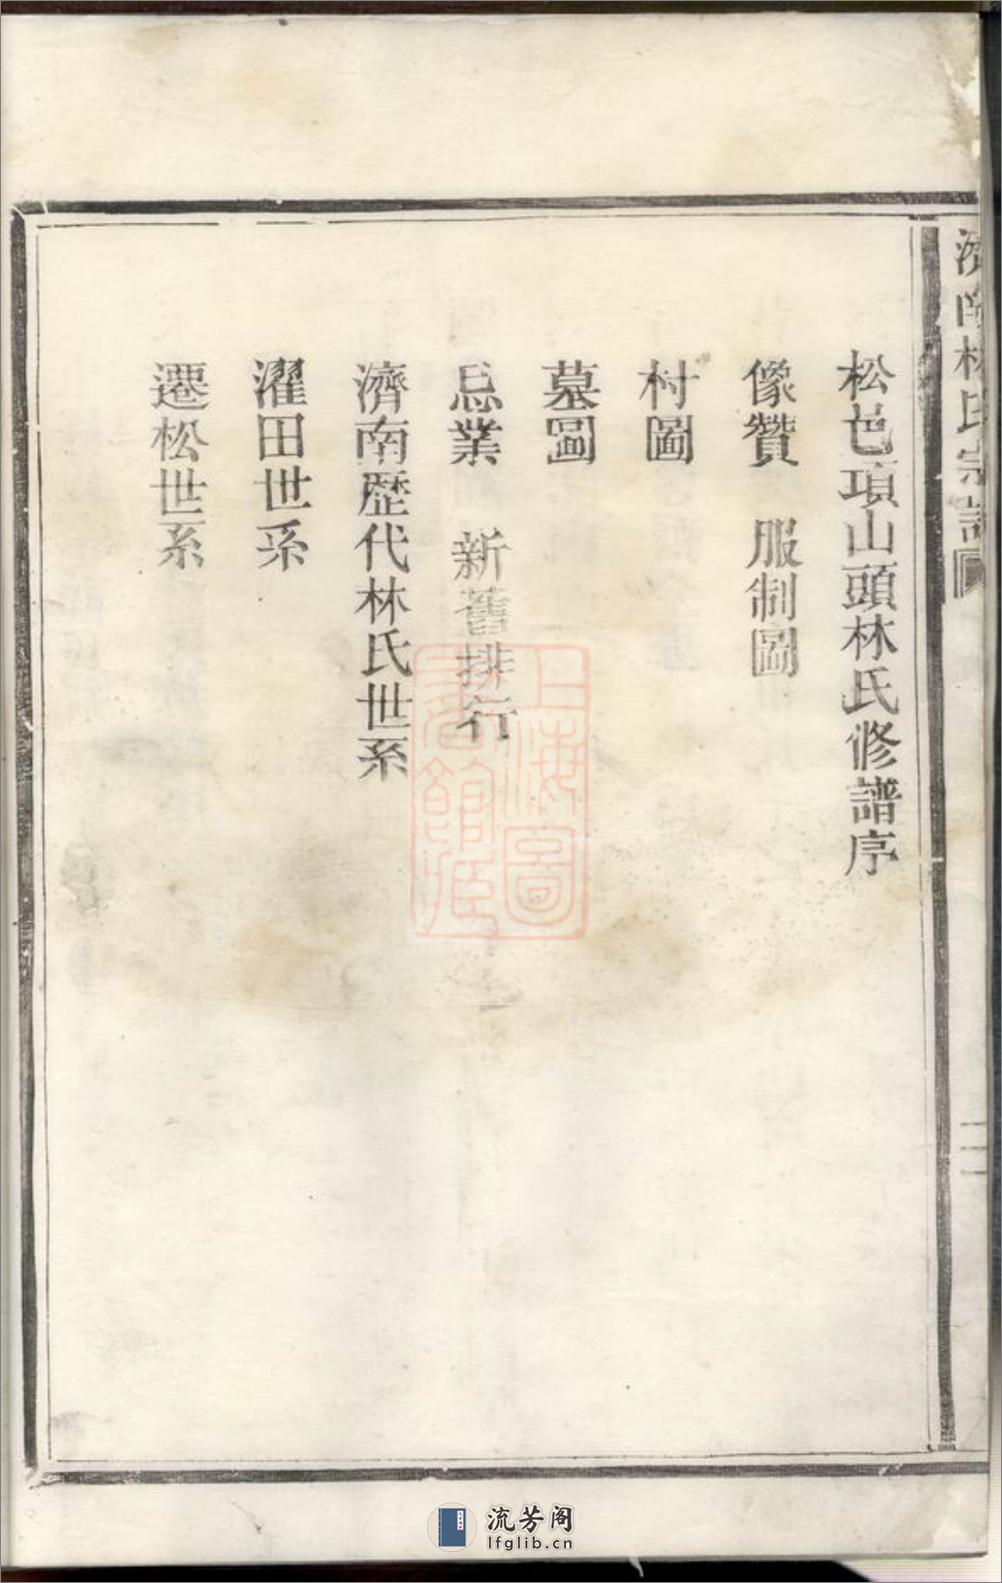 濟南林氏宗譜
松邑項山頭林氏修譜序
像贊 服制圖
村圖
墓圖
忌業 新舊排行
濟南歷代林氏世系
濯田世系
遷松世系
上海圖書館藏
流芳阁
lfglib.cn